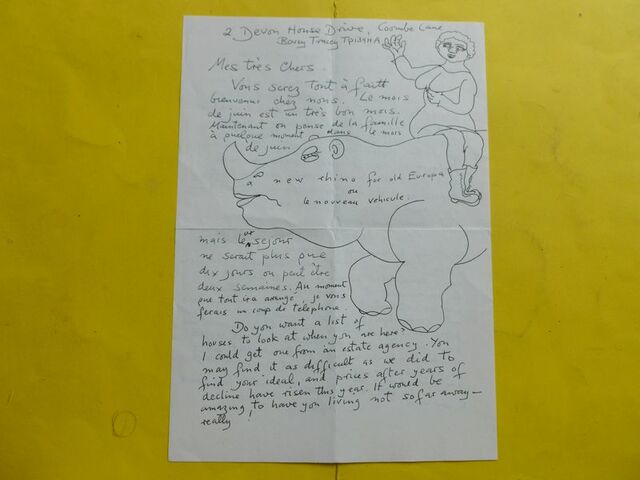 2 Devon House Drive, Coombe Lane
Bovey Tracey TQ13
Mes très chers.
Vous serez tout à fait
bienvenus chez nous. Le mois
de juin est un très bon mois.
Maintenant on pense de la famille
à quelque moment dans le mois
de juin
a new rhino for old Europa
ou
le nouveau vehicule.
mais le sejour
ne serait plus que
dix jours ou peut être
deux semaines. Au moment
que tout ira arrangé, je vous
ferais un coup de telephone.
Do you want a list of
houses to look at when you are here?
I could get one from an estate agency. You
may find it as difficult as we did to
find your ideal, and prices after years of
decline have risen this year. It would be
amazing to have you living not so far away—
really!